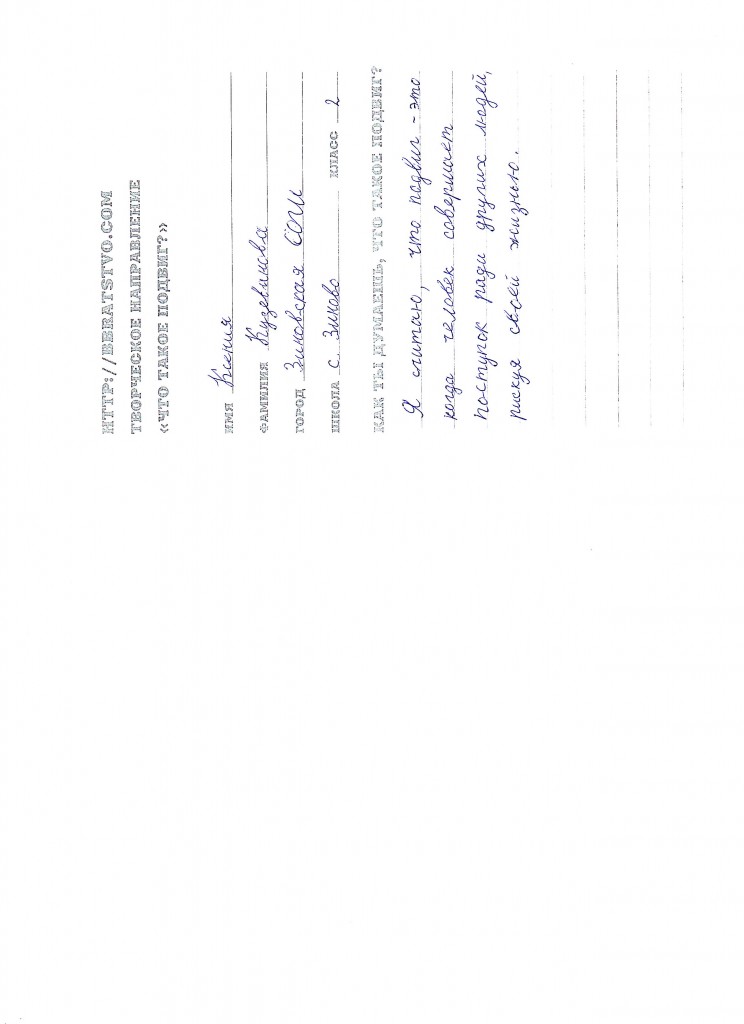 HTTP://BBRATSTVO.COM
ТВОРЧЕСКОЕ НАПРАВЛЕНИЕ
«ЧТО ТАКОЕ ПОДВИГ?»
ИМЯ Ксения
ФАМИЛИЯ Кузеванова
ГОРОД Зиковская СОШ
ШКОЛА с. Зиково КЛАСС 2
КАК ТЫ ДУМАЕШЬ, ЧТО ТАКОЕ ПОДВИГ?
Я считаю, что подвиг - это
когда человек совершает
поступок ради других людей,
рискуя своей жизнью.